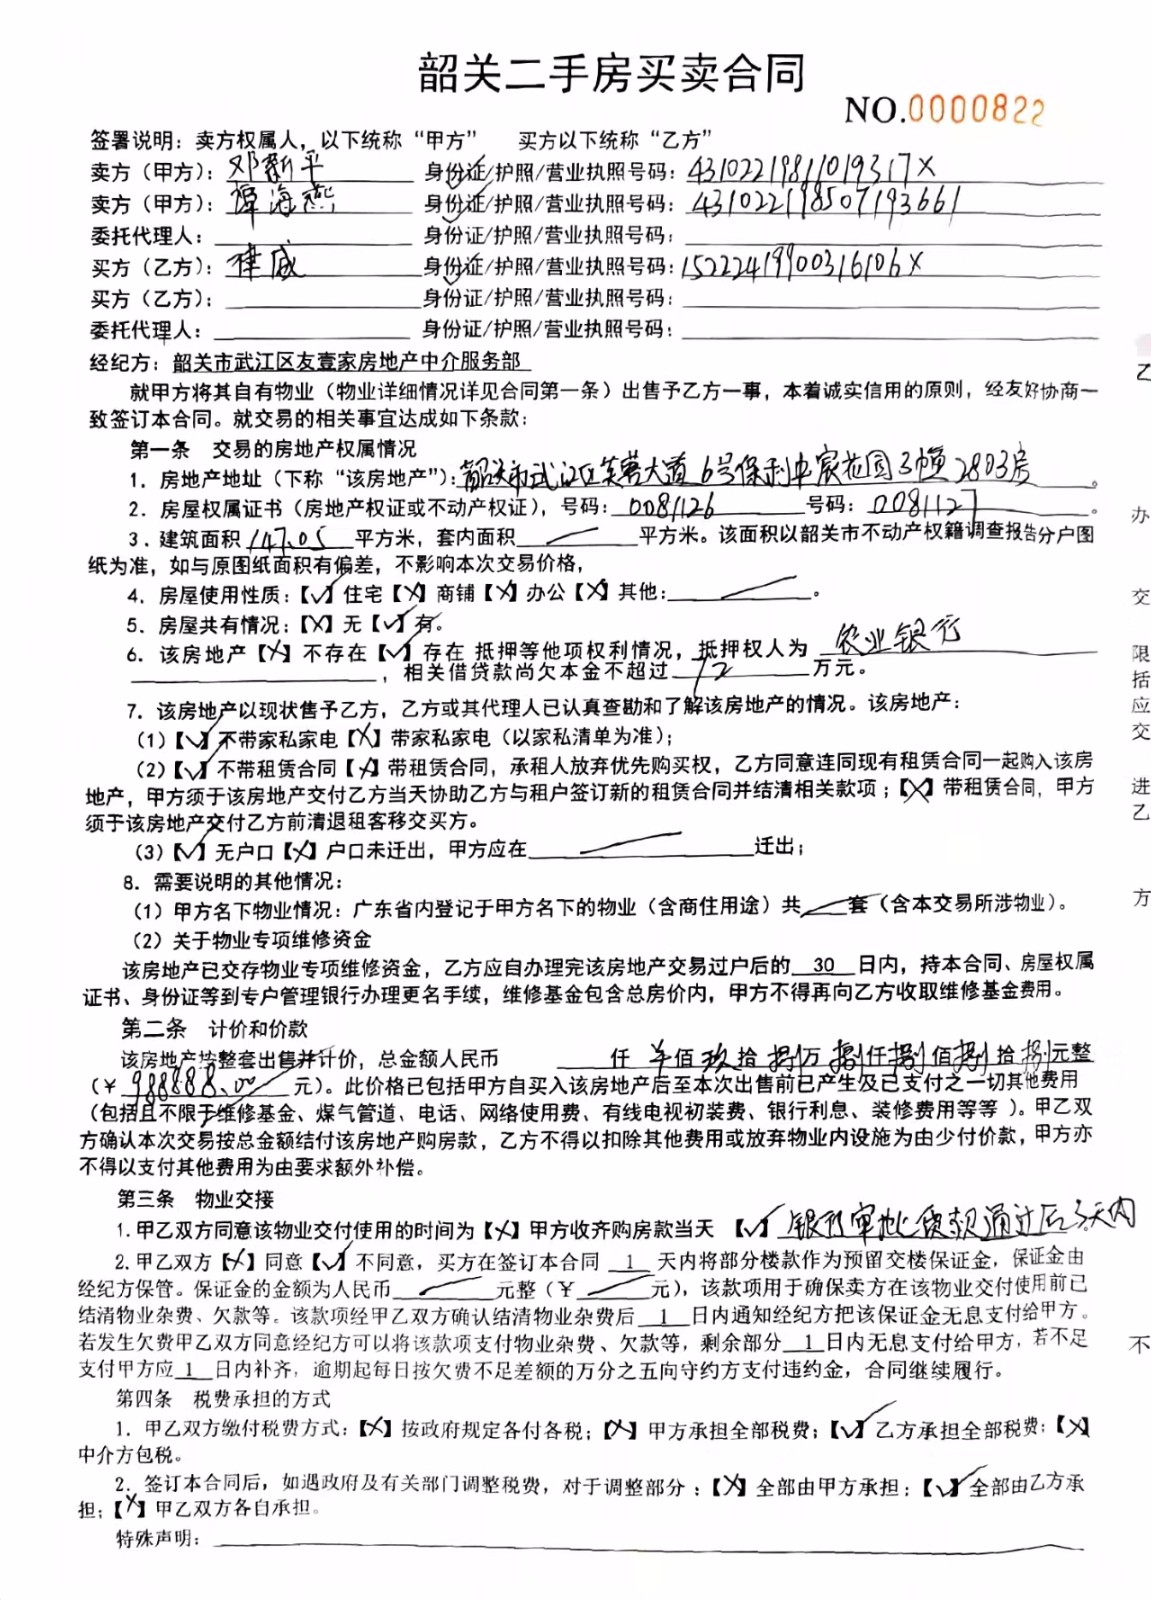 韶关二手房买卖合同
NO.0000822
签署说明：卖方权属人，以下统称“甲方”　买方以下统称“乙方”
卖方（甲方）：邓新平 身份证/护照/营业执照号码：43102219811019317X
卖方（甲方）：谭海燕 身份证/护照/营业执照号码：431022198507193661
委托代理人： 身份证/护照/营业执照号码：
买方（乙方）：律威 身份证/护照/营业执照号码：15222419900316106X
买方（乙方）： 身份证/护照/营业执照号码：
委托代理人： 身份证/护照/营业执照号码：
经纪方：韶关市武江区友壹家房地产中介服务部
就甲方将其自有物业（物业详细情况详见合同第一条）出售予乙方一事，本着诚实信用的原则，经友好协商一
致签订本合同。就交易的相关事宜达成如下条款：
第一条　交易的房地产权属情况
1．房地产地址（下称“该房地产”）：韶关市武江区芙蓉大道6号保利中宸花园3幢2803房。
2．房屋权属证书（房地产权证或不动产权证），号码：0081126 号码：0081127。
3．建筑面积147.05平方米，套内面积／平方米。该面积以韶关市不动产权籍调查报告分户图
纸为准，如与原图纸面积有偏差，不影响本次交易价格，
4．房屋使用性质：【√】住宅【X】商铺【X】办公【X】其他：／。
5．房屋共有情况：【X】无【√】有。
6．该房地产【X】不存在【√】存在 抵押等他项权利情况，抵押权人为 农业银行
，相关借贷款尚欠本金不超过72万元。
7．该房地产以现状售予乙方，乙方或其代理人已认真查勘和了解该房地产的情况。该房地产：
（1）【√】不带家私家电【X】带家私家电（以家私清单为准）；
（2）【√】不带租赁合同【X】带租赁合同，承租人放弃优先购买权，乙方同意连同现有租赁合同一起购入该房
地产，甲方须于该房地产交付乙方当天协助乙方与租户签订新的租赁合同并结清相关款项；【X】带租赁合同，甲方
须于该房地产交付乙方前清退租客移交买方。
（3）【√】无户口【X】户口未迁出，甲方应在／迁出；
8．需要说明的其他情况：
（1）甲方名下物业情况：广东省内登记于甲方名下的物业（含商住用途）共／套（含本交易所涉物业）。
（2）关于物业专项维修资金
该房地产已交存物业专项维修资金，乙方应自办理完该房地产交易过户后的 30 日内，持本合同、房屋权属
证书、身份证等到专户管理银行办理更名手续，维修基金包含总房价内，甲方不得再向乙方收取维修基金费用。
第二条　计价和价款
该房地产按整套出售并计价，总金额人民币 仟 羊佰玖拾捌万捌仟捌佰捌拾捌元整
（￥988888.00元）。此价格已包括甲方自买入该房地产后至本次出售前已产生及已支付之一切其他费用
（包括且不限于维修基金、煤气管道、电话、网络使用费、有线电视初装费、银行利息、装修费用等等 ）。甲乙双
方确认本次交易按总金额结付该房地产购房款，乙方不得以扣除其他费用或放弃物业内设施为由少付价款，甲方亦
不得以支付其他费用为由要求额外补偿。
第三条　物业交接
1.甲乙双方同意该物业交付使用的时间为【X】甲方收齐购房款当天 【√】银行审批贷款通过后3天内
2.甲乙双方【X】同意【√】不同意，买方在签订本合同 1 天内将部分楼款作为预留交楼保证金，保证金由
经纪方保管。保证金的金额为人民币／元整（￥／元），该款项用于确保卖方在该物业交付使用前已
结清物业杂费、欠款等。该款项经甲乙双方确认结清物业杂费后 1 日内通知经纪方把该保证金无息支付给甲方。
若发生欠费甲乙双方同意经纪方可以将该款项支付物业杂费、欠款等，剩余部分 1 日内无息支付给甲方，若不足
支付甲方应 1 日内补齐，逾期起每日按欠费不足差额的万分之五向守约方支付违约金，合同继续履行。
第四条　税费承担的方式
1．甲乙双方缴付税费方式：【X】按政府规定各付各税；【X】甲方承担全部税费；【√】乙方承担全部税费；【X】
中介方包税。
2．签订本合同后，如遇政府及有关部门调整税费，对于调整部分：【X】全部由甲方承担；【√】全部由乙方承
担；【X】甲乙双方各自承担。
特殊声明：
乙
办
交
限
括
应
交
进
乙
方
不